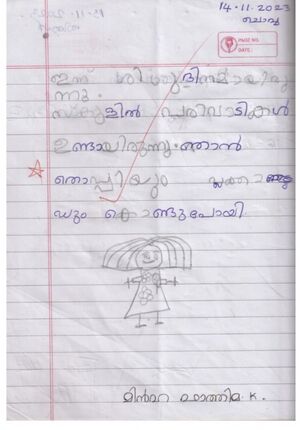 14.11.2023
ചൊവ്വ
PAGE NO.
DATE:
ഇന്ന് ശിശുദിനമായിരു
ന്നു.
സ്കൂളിൽ പരിപാടികൾ
ഉണ്ടായിരുന്നു. ഞാൻ
തൊപ്പിയും
കൊണ്ടുപോയി.
മിൻഹ ഫാത്തിമ. K.